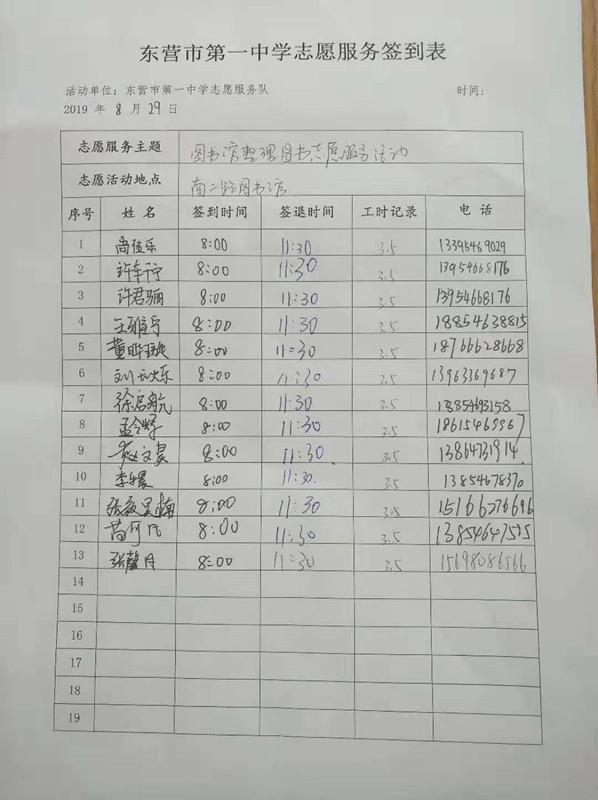 东营市第一中学志愿服务签到表
活动单位：东营市第一中学志愿服务队 时间：
2019 年 8 月 29 日
志愿服务主题 图书馆整理图书志愿服务活动
志愿活动地点 南二路图书馆
序号 姓名 签到时间 签退时间 工时记录 电话
1 高佳乐 8:00 11:30 3.5 13395469029
2 8:00 11:30 3.5 13954668176
3 许君骊 8:00 11:30 3.5 13954668176
4 8:00 11:30 3.5 18854638815
5 8:00 11:30 3.5 18766628668
6 8:00 11:30 3.5 13963369687
7 徐启航 8:00 11:30 3.5
8 8:00 11:30 3.5
9 赵文昊 8:00 11:30 3.5 13864731914
10 8:00 11:30 3.5 13854678370
11 8:00 11:30 3.5
12 8:00 11:30 3.5
13 张馨月 8:00 11:30 3.5 15698086566
14
15
16
17
18
19